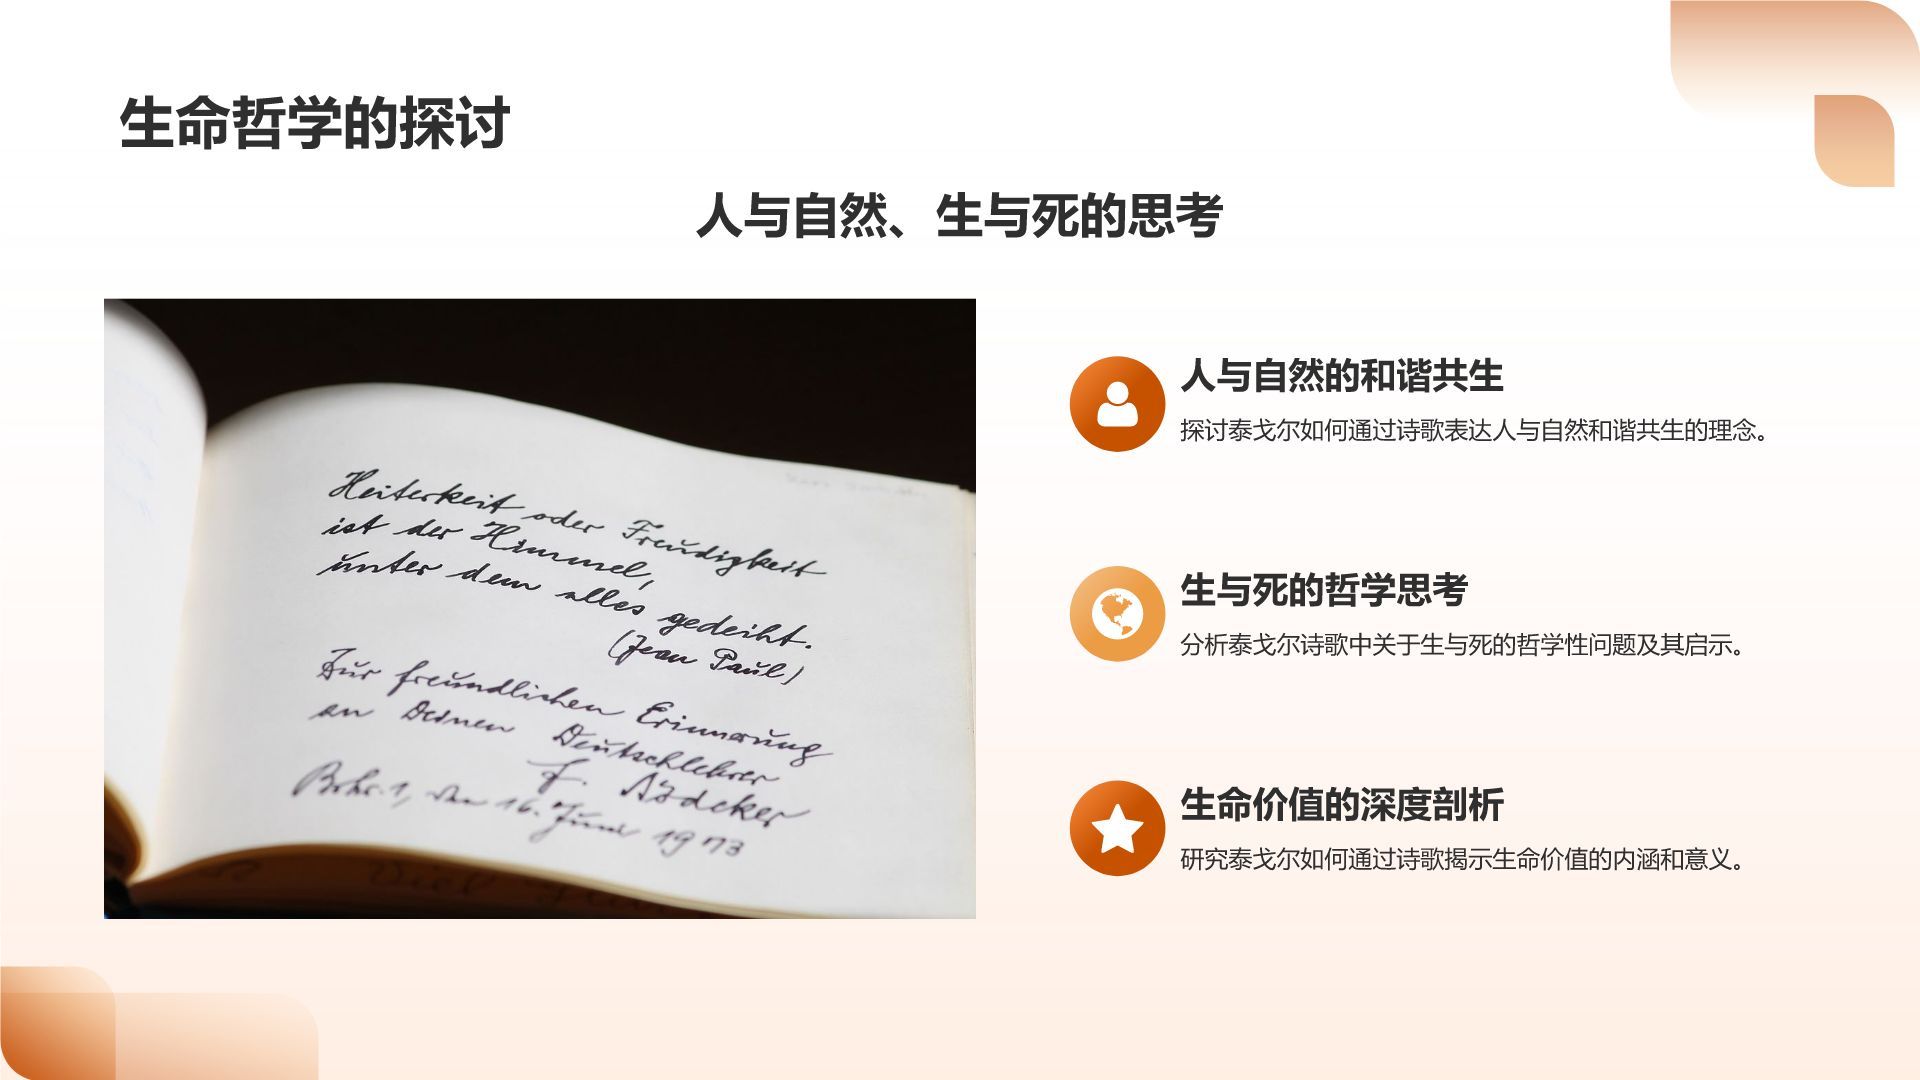 生命哲学的探讨
人与自然、生与死的思考
Heiterkeit oder Freudigkeit
ist der Himmel,
unter dem alles gedeiht.
(Jean Paul)
Zur freundlichen Erinnerung
an Deinen Deutschlehrer
den 16. Juni 1973
人与自然的和谐共生
探讨泰戈尔如何通过诗歌表达人与自然和谐共生的理念。
生与死的哲学思考
分析泰戈尔诗歌中关于生与死的哲学性问题及其启示。
生命价值的深度剖析
研究泰戈尔如何通过诗歌揭示生命价值的内涵和意义。